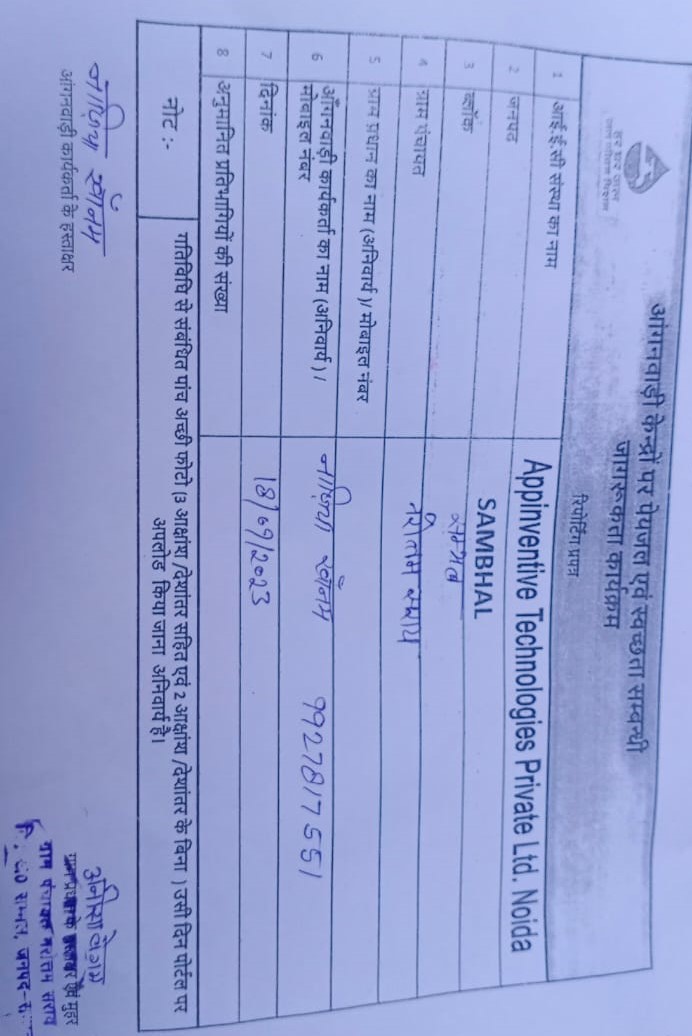 हर घर जल
जल जीवन मिशन
आंगनवाड़ी केन्द्रों पर पेयजल एवं स्वच्छता सम्बन्धी
जागरूकता कार्यक्रम
रिपोर्टिंग प्रपत्र
1 आई.ई.सी संस्था का नाम Appinventive Technologies Private Ltd. Noida
2 जनपद SAMBHAL
3 ब्लॉक सम्भल
4 ग्राम पंचायत नरोत्तम सराय
5 ग्राम प्रधान का नाम (अनिवार्य)/ मोबाइल नंबर
6 आँगनवाड़ी कार्यकर्ता का नाम (अनिवार्य) /
मोबाइल नंबर नाज़िया 9927817551
7 दिनांक 18/09/2023
8 अनुमानित प्रतिभागियों की संख्या
नोट :- गतिविधि से संबंधित पांच अच्छी फोटो (3 आक्षांश /देशांतर सहित एवं 2 आक्षांश /देशांतर के बिना ) उसी दिन पोर्टल पर
अपलोड किया जाना अनिवार्य है।
नाज़िया
आंगनवाड़ी कार्यकर्ता के हस्ताक्षर
एवं मुहर
ग्राम पंचायत नरोत्तम सराय
सम्भल, जनपद-